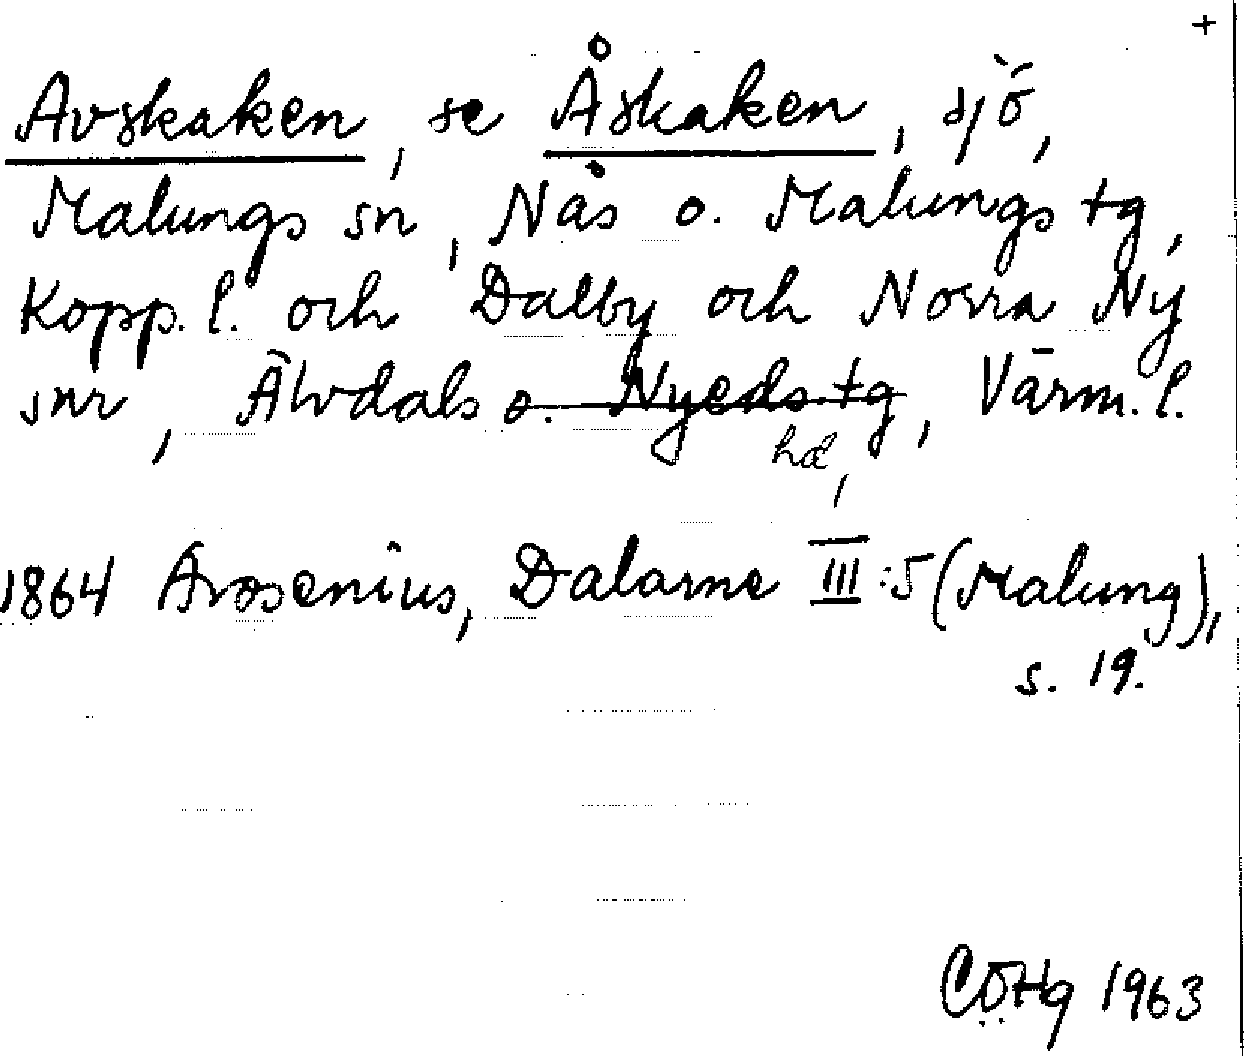 +
Avskaken, se Åskaken, sjö,
Malungs sn, Nås o. Malungs tg,
Kopp. l. och Dalby och Norra Ny
snr, Älvdals o. Nyeds tg, Värm. l.
hd,
1864 Arosenius, Dalarne III:5 (Malung),
s. 19.
CÖHg 1963